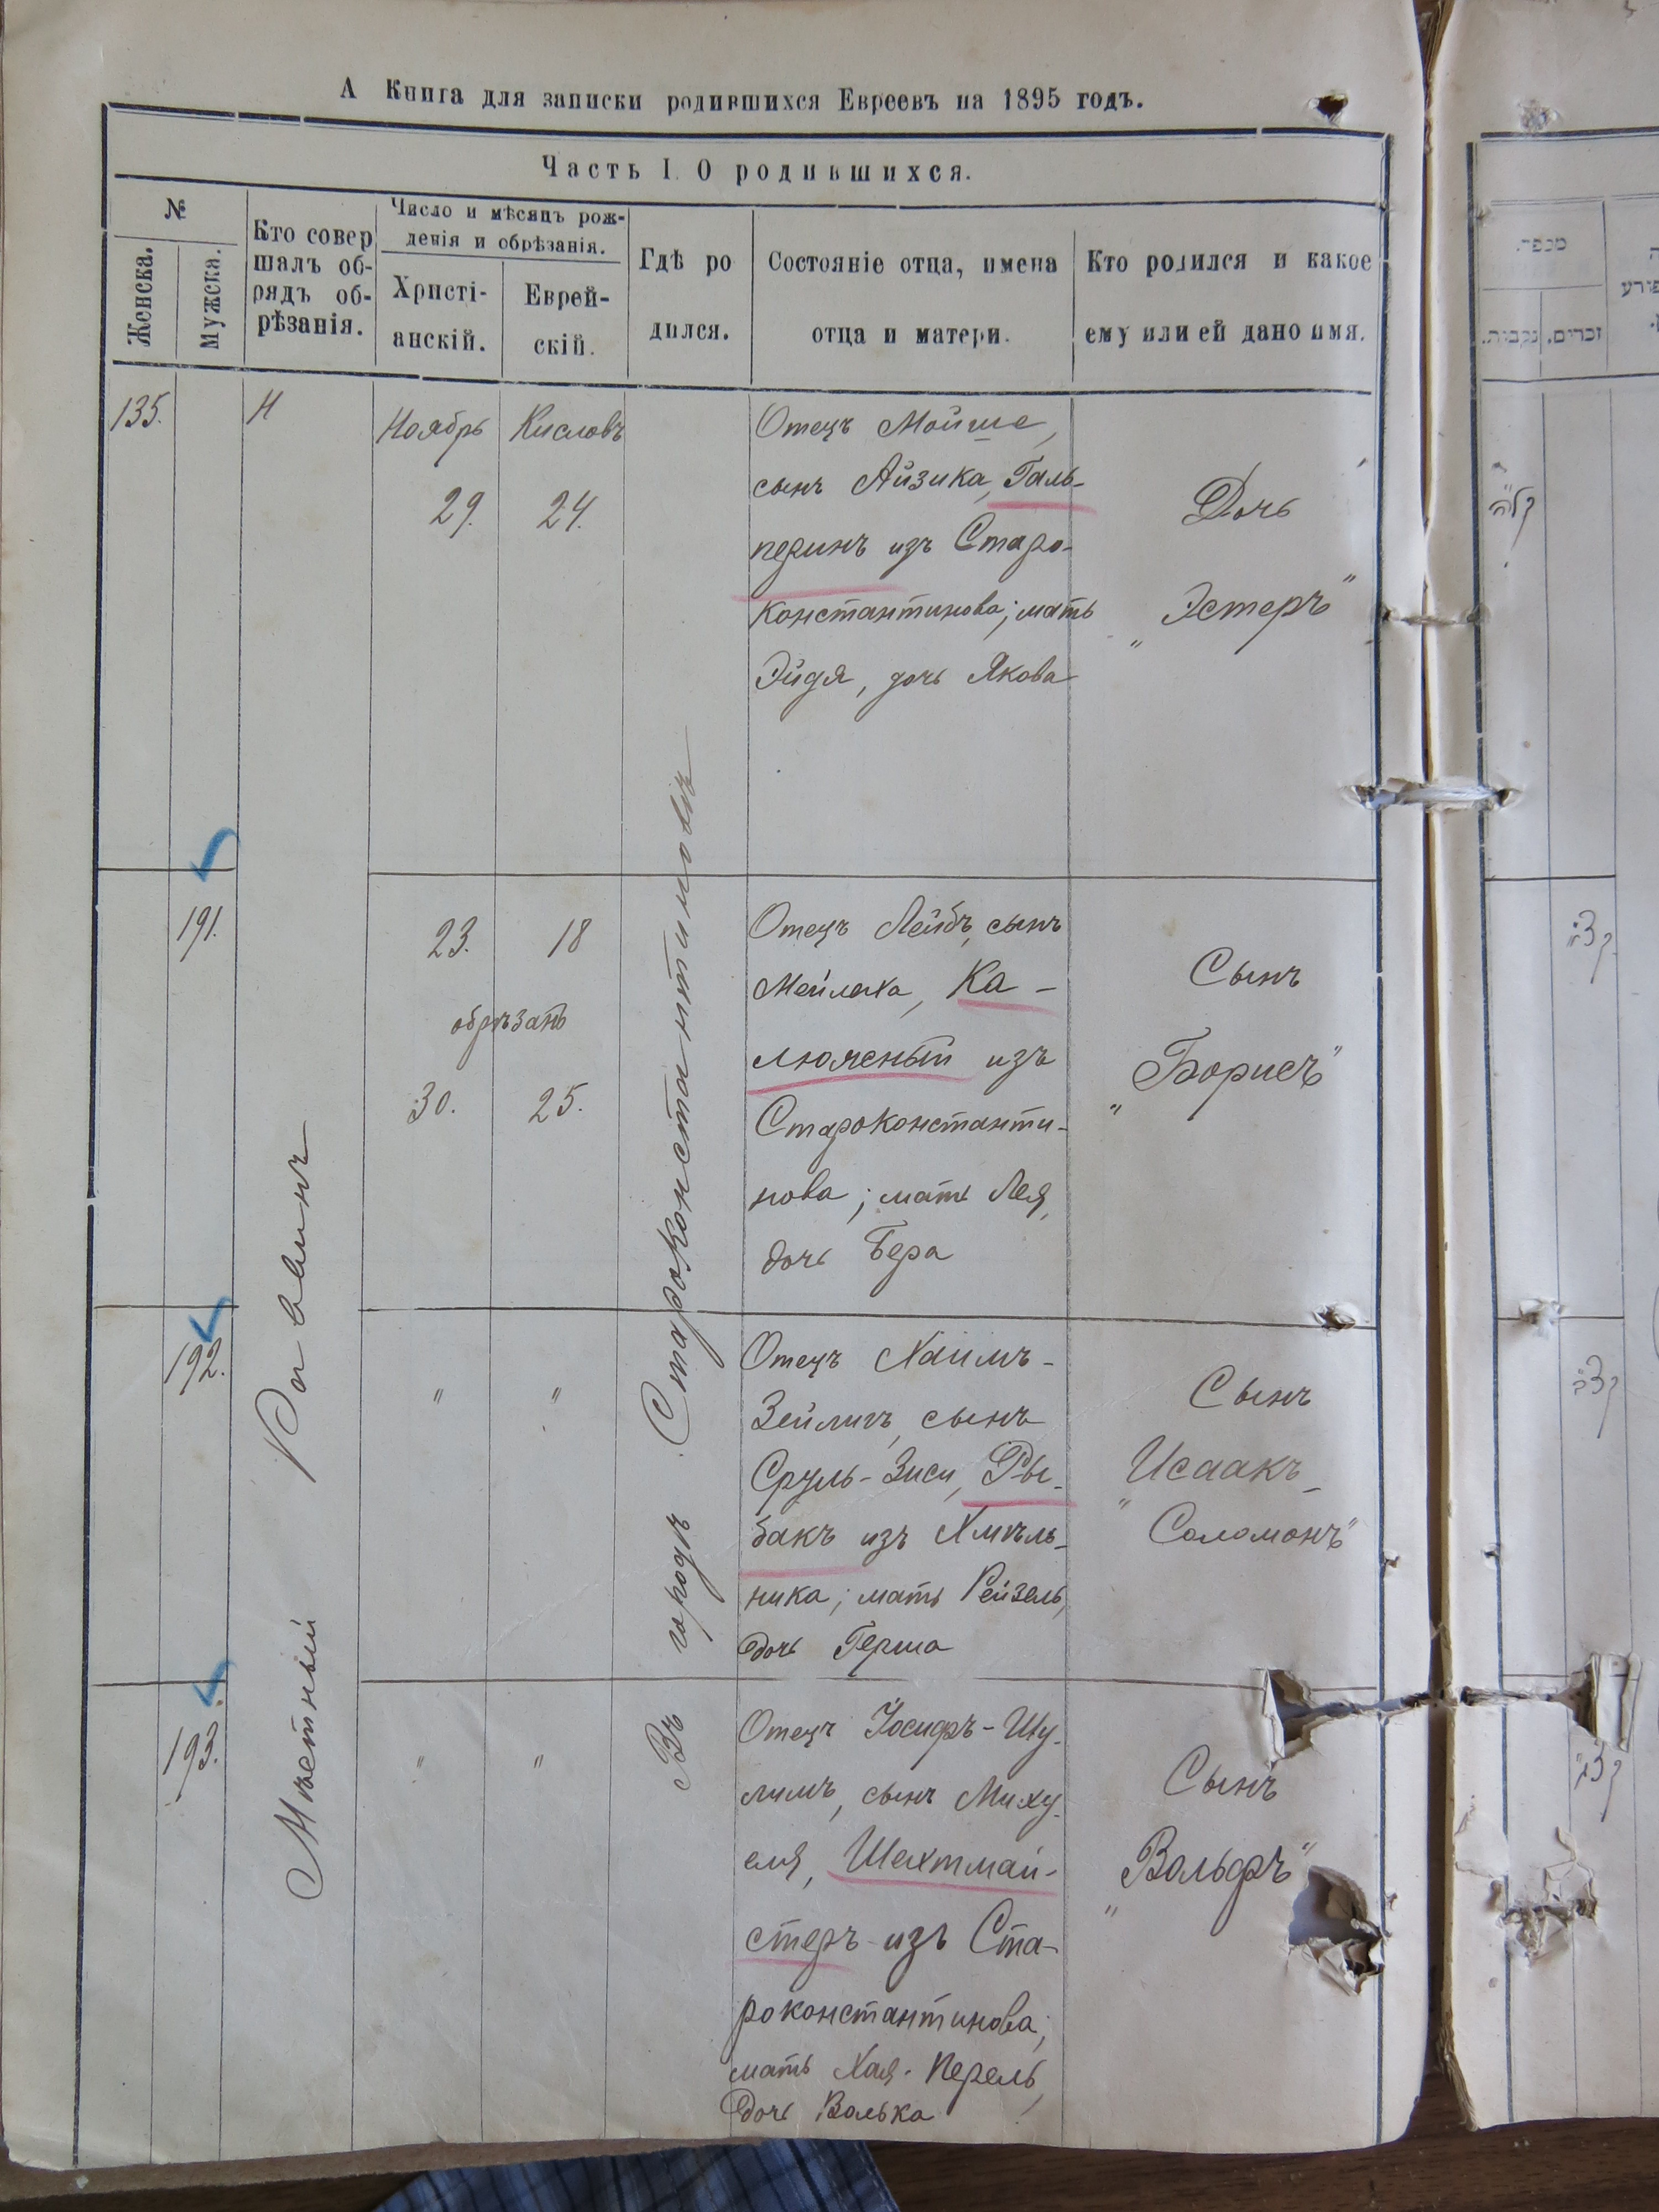 А Книга для записки родившихся Евреевъ на 1895 годъ.
Часть I. О родившихся.
№
Женска.
Мужска.
Кто совер
шалъ об-
рядъ об-
рѣзанія.
Число и мѣсяцъ рож-
денія и обрѣзанія.
Христі-
анскій.
Еврей-
скій.
Гдѣ ро
дился.
Состояніе отца, имена
отца и матери.
Кто родился и какое
ему или ей дано имя.
135.
Н
Ноябрь
29.
Кисловъ
24.
Отецъ Мойше,
сынъ Айзика, Галь-
перинъ изъ Старо-
константинова; мать
Эйдя, дочь Якова
Дочь
"Эстеръ"
Мѣстный Раввинъ
Въ городѣ Староконстантиновѣ
191.
23.
18
обрѣзанъ
30.
25.
Отецъ Лейбъ, сынъ
Мейлеха, Ка-
люжный изъ
Староконстанти-
нова; мать Лея,
дочь Бера
Сынъ
"Борисъ"
192.
"
"
Отецъ Хаимъ-
Зейлигъ, сынъ
Сруль-Зиси, Ры-
бакъ изъ Хмѣль-
ника; мать Рейзель,
дочь Герша
Сынъ
"Исаакъ-
Соломонъ"
193.
"
"
Отецъ Іосифъ-Шу-
лимъ, сынъ Миху-
еля, Шехтмай-
стеръ изъ Ста-
роконстантинова;
мать Хая-Перель,
дочь Волька
Сынъ
"Вольфъ"
מספר.
זכרים.
נקבות.
קל"ה
קצ"א
קצ"ב
קצ"ג